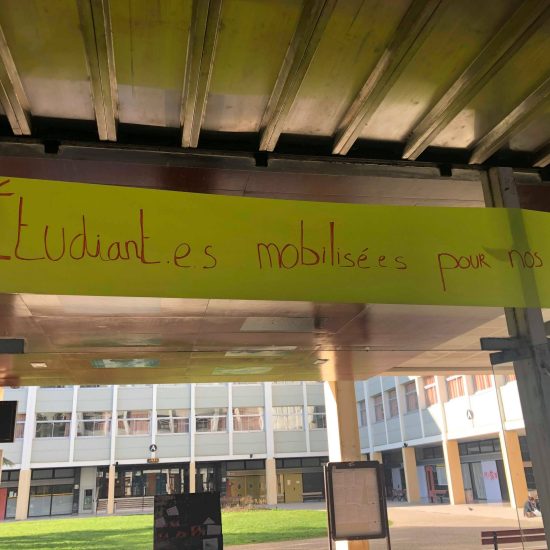 Étudiant.e.s mobilisées pour nos